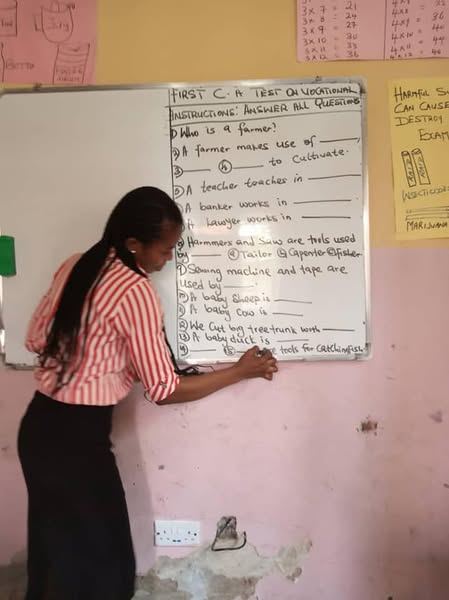 FIRST C. A TEST ON VOCATIONAL
INSTRUCTIONS: ANSWER ALL QUESTIONS
① Who is a farmer?
② A farmer makes use of
③ ④ to cultivate.
⑤ A teacher teaches in
A banker works in
A lawyer works in
Harmmers and Saws are tools used
by Tailor Capenter fisher
⑨ Sewing machine and tape are
used by
⑩ A baby sheep is
A baby cow is
⑫ We cut big tree trunk with
⑬ A baby duck is
⑭ ⑮ tools for catching fish
3 x 7 = 21
3 x 8 = 24
3 x 9 = 27
3 x 10 = 30
3 x 11 = 33
3 x 12 = 36
36
40
44
48
HARMFUL
CAN CAUSE
DESTROY
EXAM
INSECTICIDE
MARIJUANA